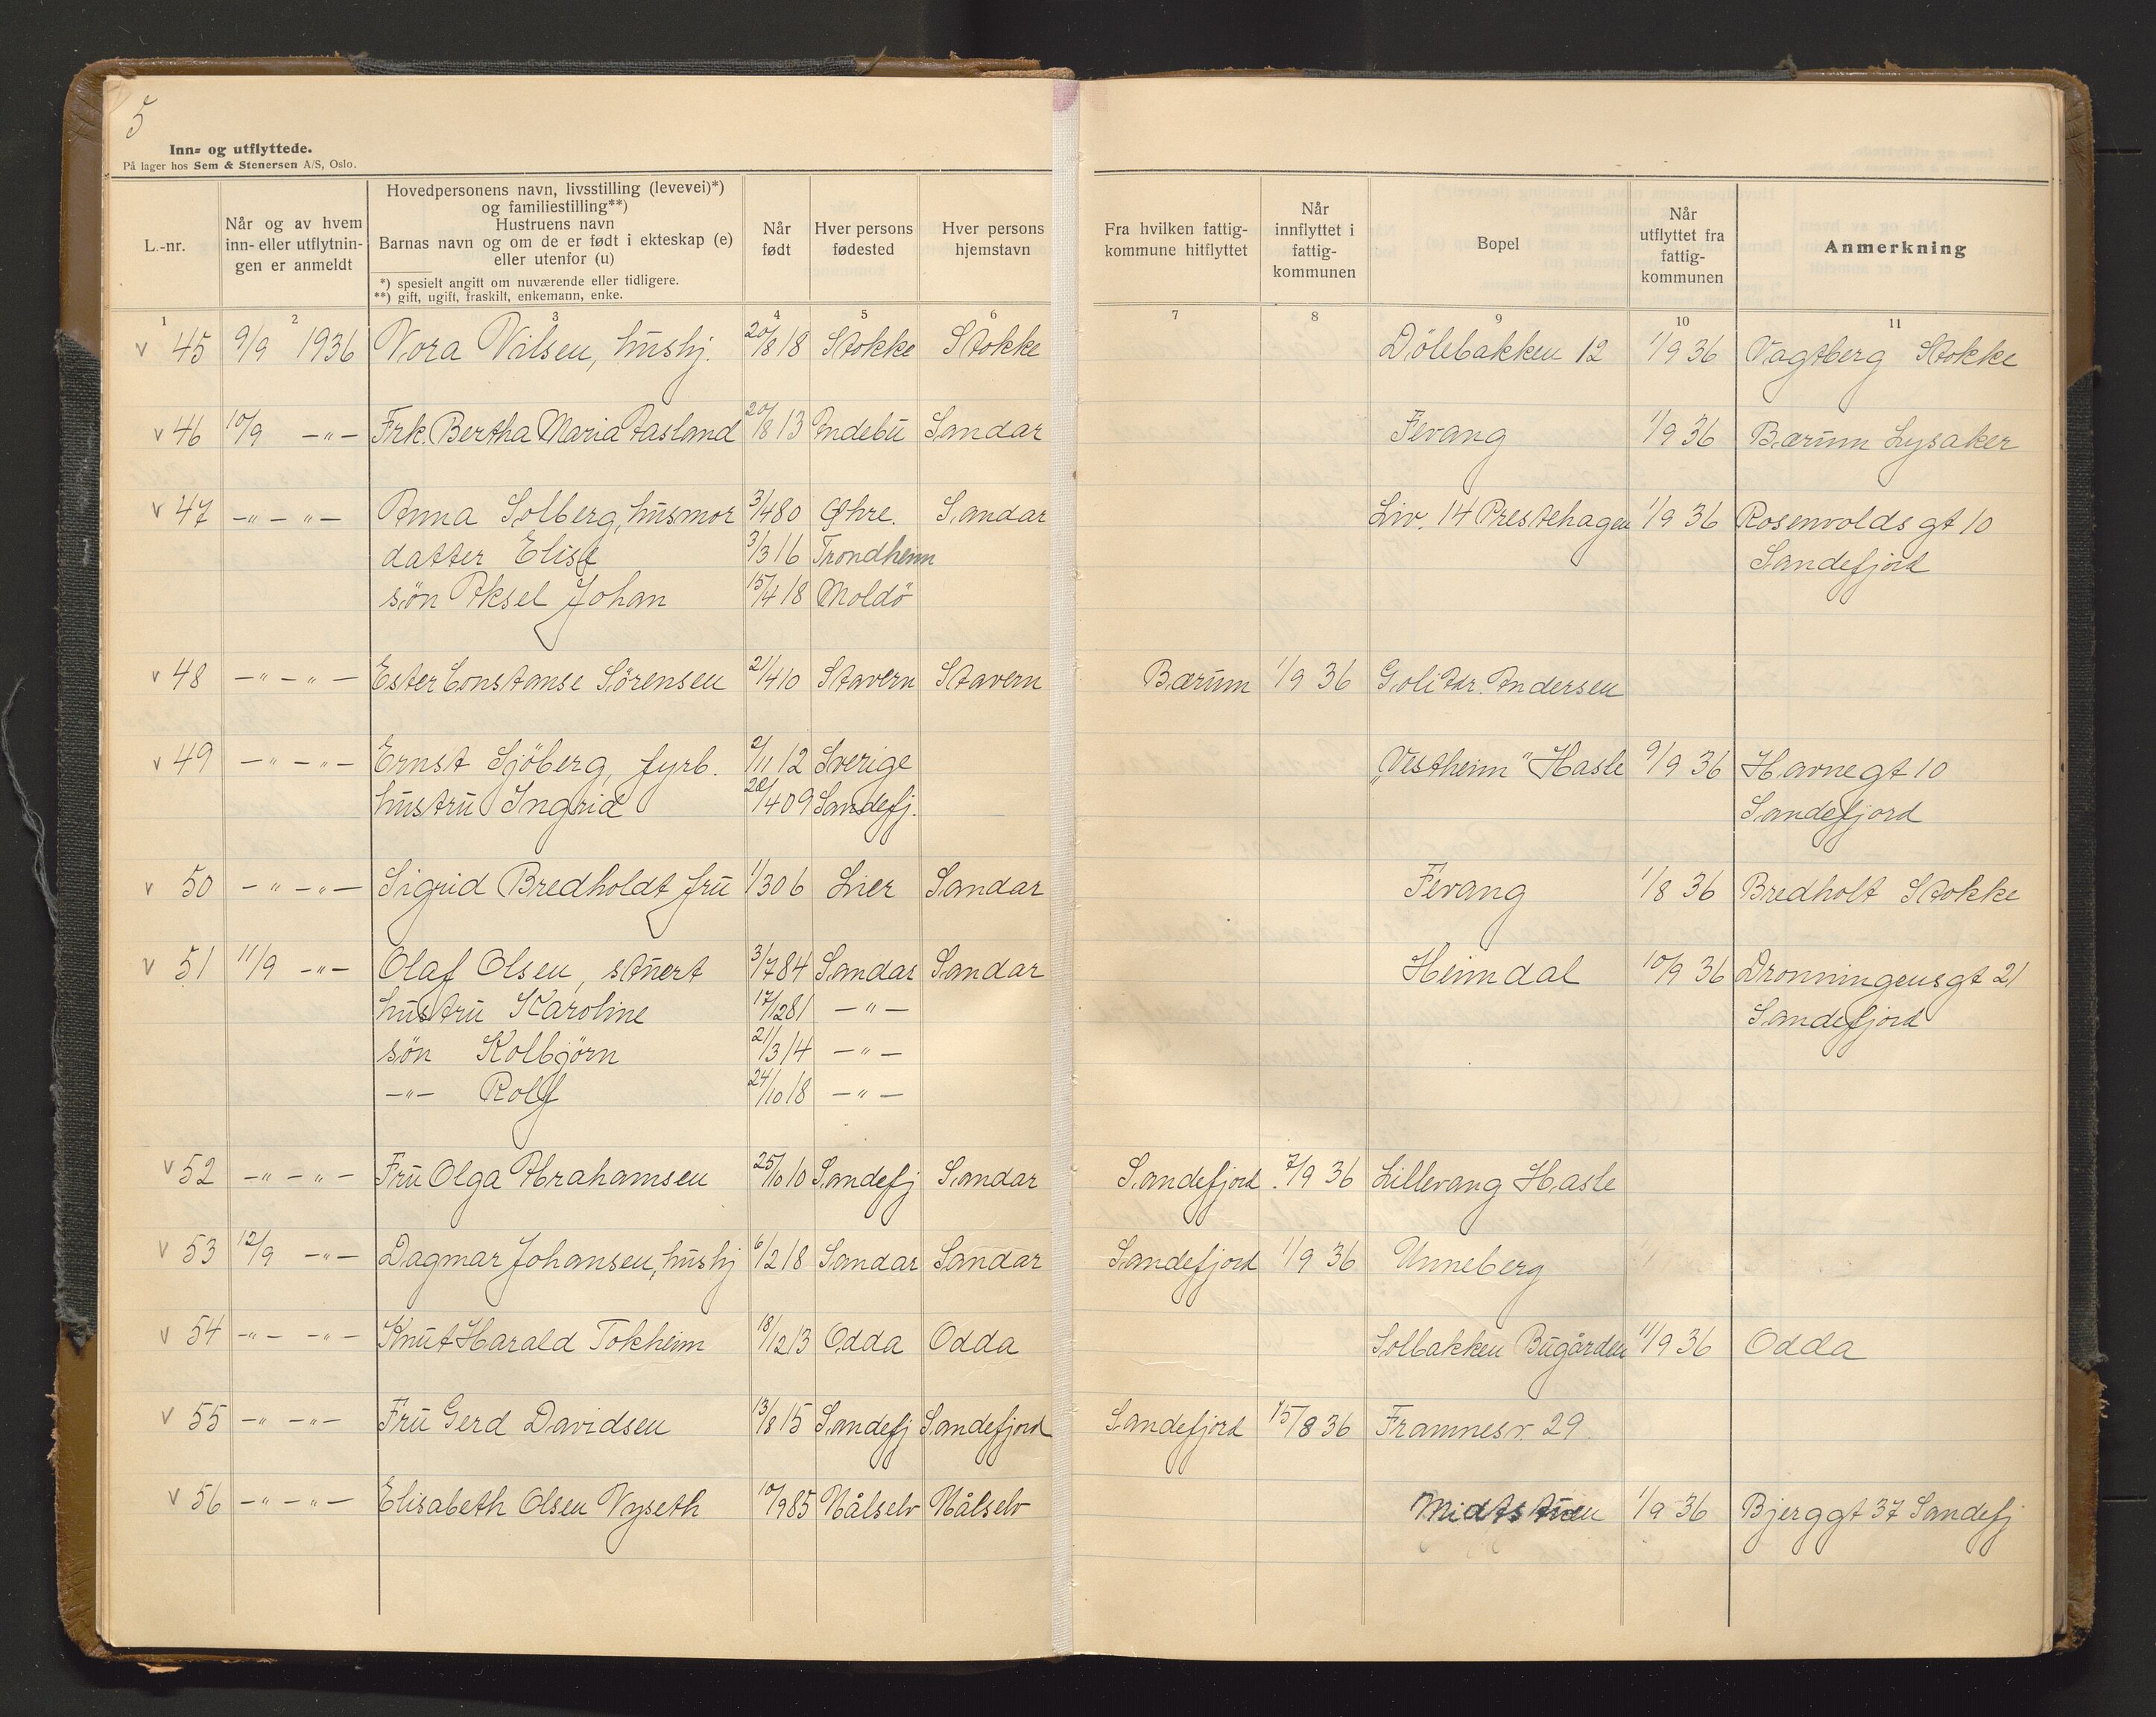 5
Inn- og utflyttede.
På lager hos Sem & Stenersen A/S, Oslo.
L.-nr.
Når og av hvem inn- eller utflytnin-gen er anmeldt
Hovedpersonens navn, livsstilling (levevei)*) og familiestilling**)
Hustruens navn
Barnas navn og om de er født i ekteskap (e) eller utenfor (u)
*) spesielt angitt om nuværende eller tidligere.
**) gift, ugift, fraskilt, enkemann, enke.
Når født
Hver persons fødested
Hver persons hjemstavn
Fra hvilken fattig-kommune hitflyttet
Når innflyttet i fattig-kommunen
Bopel
Når utflyttet fra fattig-kommunen
Anmerkning
1 2 3 4 5 6 7 8 9 10 11
v 45 9/9 1936 Nora Nilsen, hushj. 20/8 18 Stokke Stokke Dölebakken 12 1/9 36 Vagtberg Stokke
v 46 10/9 -"- Frk. Bertha Maria Aasland 20/8 13 Andebu Sandar Fevang 1/9 36 Bærum Lysaker
v 47 -"-"- Anna Solberg, husmor 3/4 80 Øhre. Sandar Liv. 14 Prestehagen 1/9 36 Rosenvolds gt 10
datter Elise 3/3 16 Trondheim Sandefjord
søn Aksel Johan 15/4 18 Moldö
v 48 -"-"- Ester Constanse Sörensen 21/4 10 Stavern Stavern Bærum 1/9 36 Goli Adr. Andersen
v 49 -"-"- Ernst Sjöberg, fyrb. 2/11 12 Sverige "Vestheim" Hasle 9/9 36 Havnegt 10
hustru Ingrid 20/4 09 Sandefj. Sandefjord
v 50 -"-"- Sigrid Bredholdt fru 1/3 06 Lier Sandar Fevang 1/8 36 Bredholt Stokke
v 51 11/9 -"- Olaf Olsen, stuert 3/7 84 Sandar Sandar Heimdal 10/9 36 Dronningensgt 21
hustru Karoline 17/12 81 -"- Sandefjord
søn Kolbjörn 21/3 14 -"-
-"- Rolf 24/10 18 -"-
v 52 -"-"- Fru Olga Abrahamsen 25/10 10 Sandefj Sandar Sandefjord. 7/9 36 Lillevang Hasle
v 53 12/9 -"- Dagmar Johansen, hushj 6/2 18 Sandar Sandar Sandefjord 1/9 36 Unneberg
v 54 -"- -"- Knut Harald Tokheim 18/12 13 Odda Odda Solbakken Bugården 11/9 36 Odda
v 55 -"- -"- Fru Gerd Davidsen 13/8 15 Sandefj Sandefjord Sandefjord 15/8 36 Framnesv. 29.
v 56 -"-"- Elisabeth Olsen Nyseth 10/9 85 Målselv Målselv Midtstuen 1/9 36 Bjerggt 37 Sandefj